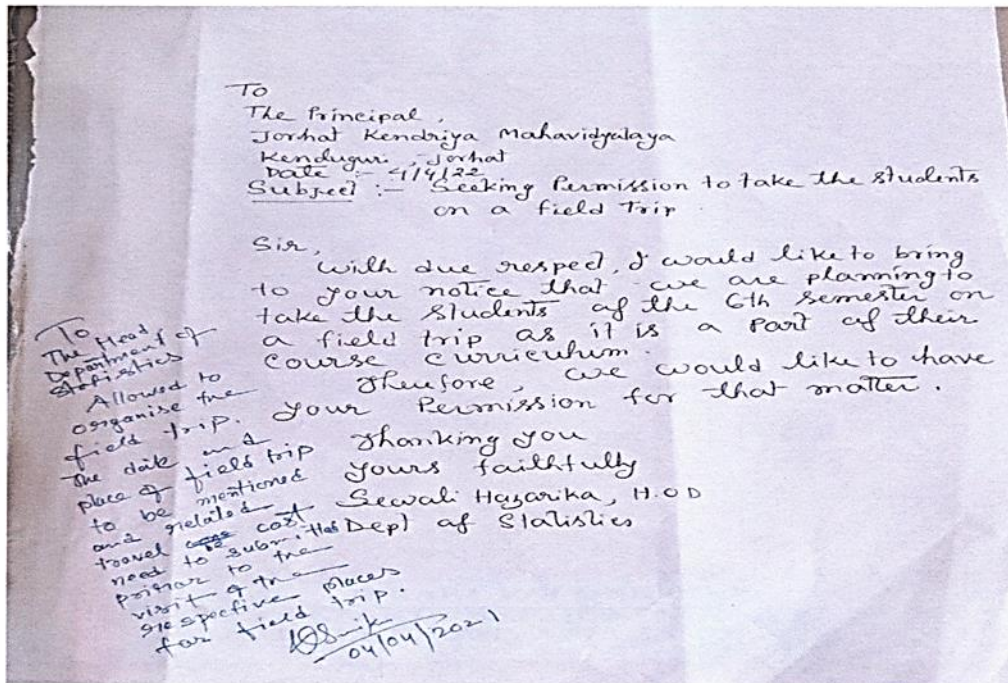 To
The Principal,
Jorhat Kendriya Mahavidyalaya
Kenduguri, Jorhat
Date :- 4/4/22
Subject :- Seeking Permission to take the students
on a field trip
Sir,
With due respect, I would like to bring
to your notice that we are planning to
take the students of the 6th semester on
a field trip as it is a part of their
course curriculum.
Therefore, we would like to have
your Permission for that matter.
Thanking you
yours faithfully
Sewali Hazarika, H.O.D
Dept of Statistics
To
The Head
Department of
Statistics
Allowed to
organise the
field trip.
The date and
place of field trip
to be mentioned
and related
travel cost
need to be submitted
prior to the
visit of the
respective places
for field trip.
04/04/2021